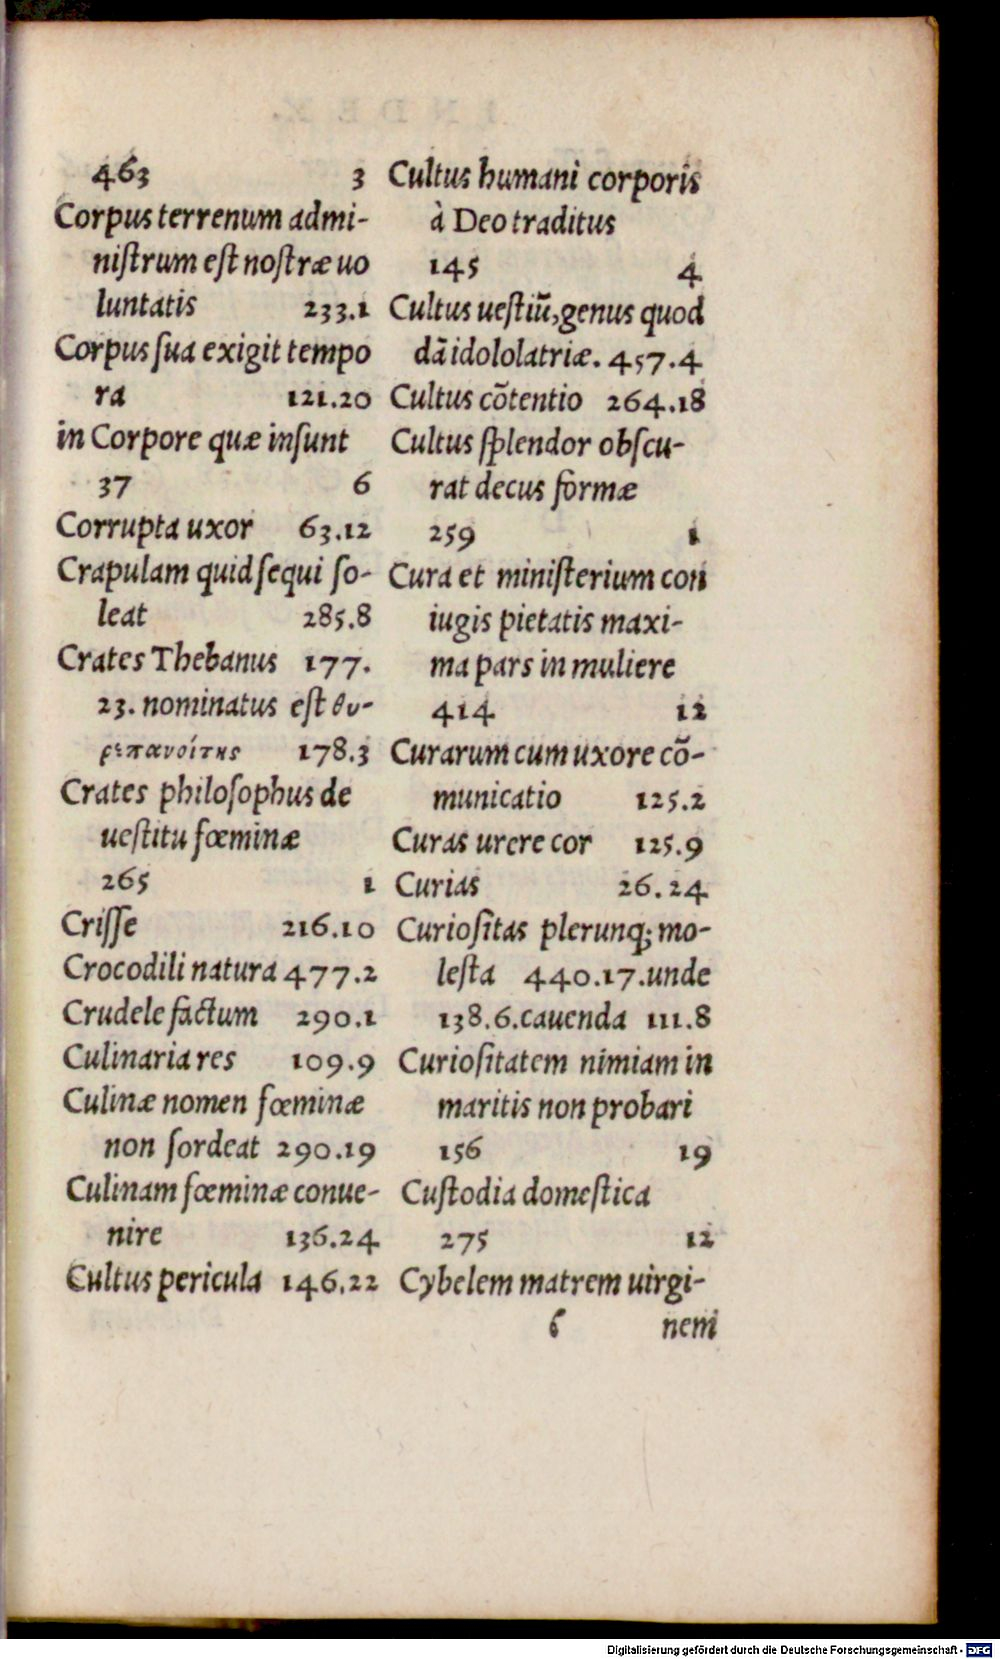 463 3
Corpus terrenum admi-
niſtrum eſt noſtræ uo
luntatis 233.1
Corpus ſua exigit tempo
ra 121.20
in Corpore quæ inſunt
37 6
Corrupta uxor 63.12
Crapulam quid ſequi ſo-
leat 285.8
Crates Thebanus 177.
23. nominatus eſt θυ-
ρεπανοίτης 178.3
Crates philoſophus de
ueſtitu fœminæ
265 1
Criſſe 216.10
Crocodili natura 477.2
Crudele factum 290.1
Culinaria res 109.9
Culinæ nomen fœminæ
non ſordeat 290.19
Culinam fœminæ conue-
nire 136.24
Cultus pericula 146.22
Cultus humani corporis
à Deo traditus
145 4
Cultus ueſtiũ, genus quod
dã idololatriæ. 457.4
Cultus cõtentio 264.18
Cultus ſplendor obſcu-
rat decus formæ
259 1
Cura et miniſterium con
iugis pietatis maxi-
ma pars in muliere
414 12
Curarum cum uxore cõ-
municatio 125.2
Curas urere cor 125.9
Curias 26.24
Curioſitas plerunq; mo-
leſta 440.17. unde
138.6. cauenda 111.8
Curioſitatem nimiam in
maritis non probari
156 19
Cuſtodia domeſtica
275 12
Cybelem matrem uirgi-
6 nem
Digitalisierung gefördert durch die Deutsche Forschungsgemeinschaft - DFG